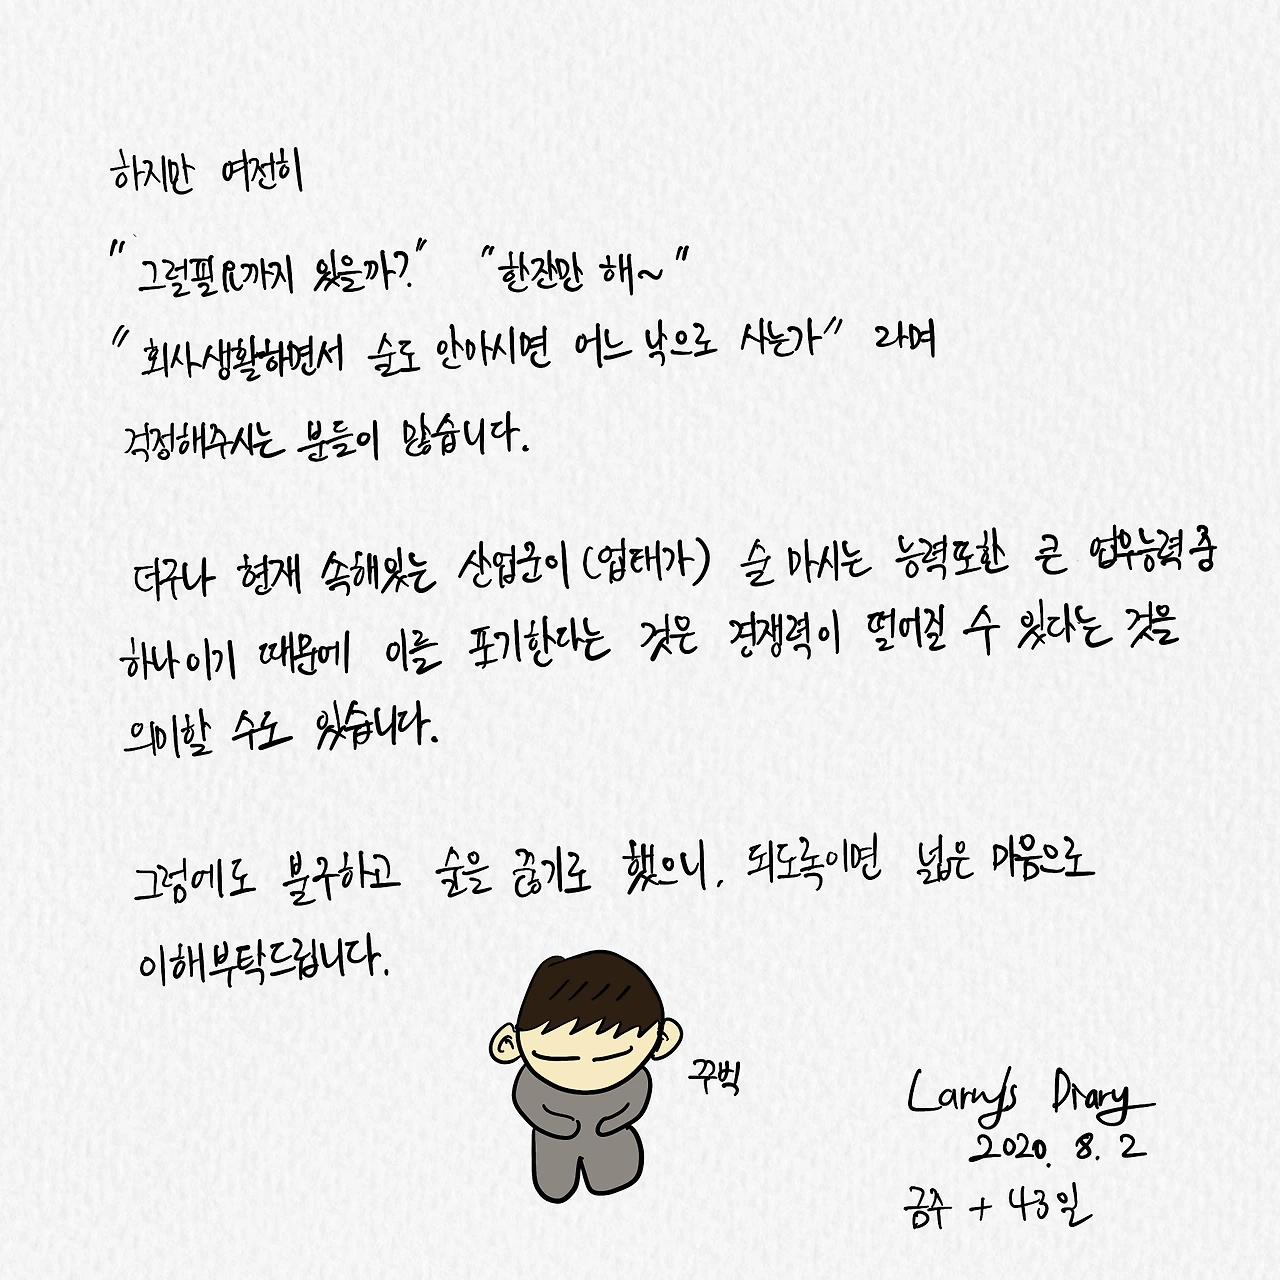 하지만 여전히
"그럴필요까지 있을까?" "한잔만 해~"
"회사생활하면서 술도 안마시면 어느 낙으로 사는가" 라며
걱정해주시는 분들이 많습니다.
더구나 현재 속해있는 산업군이(업태가) 술 마시는 능력또한 큰 업무능력중
하나이기 때문에 이를 포기한다는 것은 경쟁력이 떨어질 수 있다는 것을
의미할 수도 있습니다.
그럼에도 불구하고 술을 끊기로 했으니, 되도록이면 넓은 마음으로
이해부탁드립니다.
꾸벅
Larry's Diary
2020. 8. 2
금주 + 43일